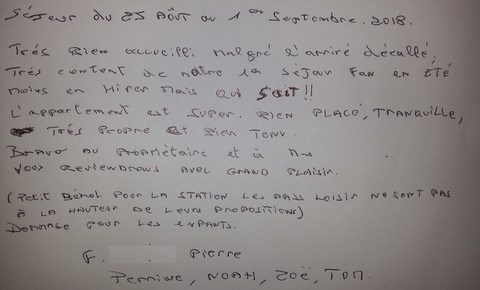 Séjour du 25 Août au 1er Septembre. 2018.
Trés Bien accueilli malgré l'arrivé décallé,
Trés content de notre 1er Séjour Fan en ÉTÉ
moins en Hiver mais qui SAIT!!
L'appartement est super. Bien PLACÉ, TRANQUILLE,
Trés Propre et Bien Tenu.
Bravo au propriétaire et à
Vous Reviendrons avec GRAND PLAISIR.
(Petit Bémol Pour LA STATION LES PASS Loisir NE SONT PAS
À LA HAUTEUR DE Leurs PROPOSITIONS)
Dommage pour les enfants.
F. Pierre
Perrine, NOAH, Zoë, TOM.